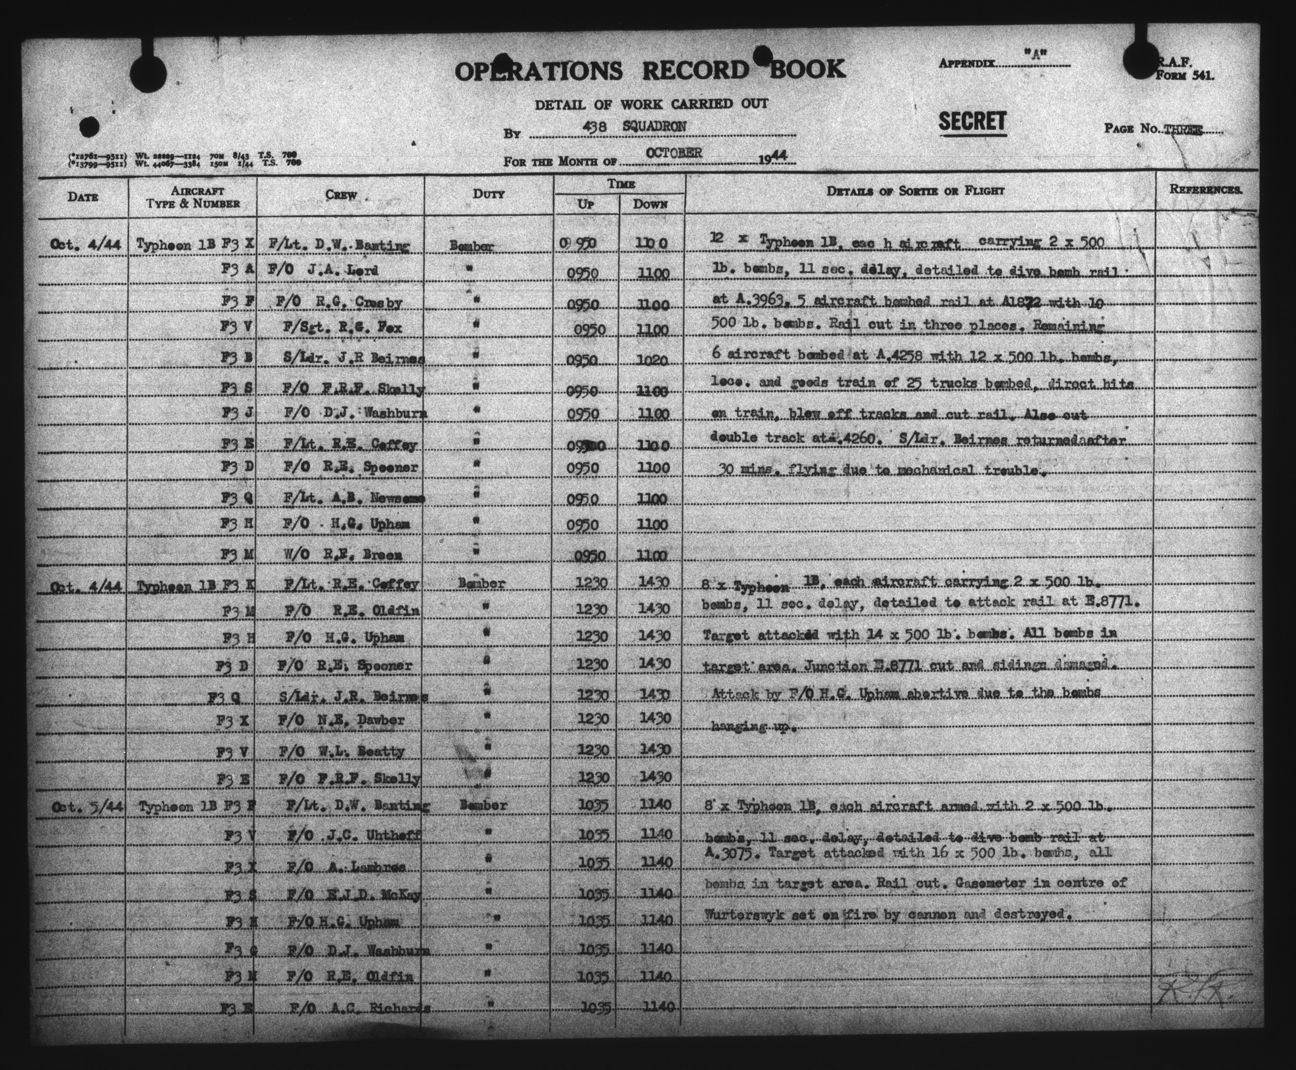 OPERATIONS RECORD BOOK
APPENDIX "A"
R.A.F. FORM 541.
DETAIL OF WORK CARRIED OUT
SECRET
BY 438 SQUADRON
PAGE No. THREE
FOR THE MONTH OF OCTOBER 1944
70M 8/43 T.S. 700
(*13799—9511) Wt. 44067—3384 150M 1/44 T.S. 700
DATE AIRCRAFT TYPE & NUMBER CREW DUTY TIME UP DOWN DETAILS OF SORTIE OR FLIGHT REFERENCES.
Oct. 4/44 Typhoon 1B F3 X F/Lt. D.W. Banting Bomber 0950 1100 12 x Typhoon 1B, eac h aircraft carrying 2 x 500
F3 A F/O J.A. Lord " 0950 1100 lb. bombs, 11 sec. delay, detailed to dive bomb rail
F3 F F/O R.G. Crosby " 0950 1100 at A.3963. 5 aircraft bombed rail at A1872 with 10
F3 V F/Sgt. R.G. Fox " 0950 1100 500 lb. bombs. Rail cut in three places. Remaining
F3 B S/Ldr. J.R Beirnes " 0950 1020 6 aircraft bombed at A.4258 with 12 x 500 lb. bombs,
F3 S F/O F.R.F. Skelly " 0950 1100 loco. and goods train of 25 trucks bombed, direct hits
F3 J F/O D.J. Washburn " 0950 1100 on train, blew off tracks and cut rail. Also cut
F3 E F/Lt. R.E. Coffey " 1100 double track at A.4260. S/Ldr. Beirnes returned after
F3 D F/O R.E. Spooner " 0950 1100 30 mins. flying due to mechanical trouble.
F3 Q F/Lt. A.B. Newsome " 0950 1100
F3 H F/O H.G. Upham " 0950 1100
F3 M W/O R.F. Breen " 0950 1100
Oct. 4/44 Typhoon 1B F3 K F/Lt. R.E. Coffey Bomber 1230 1430 8 x Typhoon 1B, each aircraft carrying 2 x 500 lb.
F3 M F/O R.E. Oldfin " 1230 1430 bombs, 11 sec. delay, detailed to attack rail at E.8771.
F3 H F/O H.G. Upham " 1230 1430 Target attacked with 14 x 500 lb. bombs. All bombs in
F3 D F/O R.E. Spooner " 1230 1430 target area. Junction E.8771 cut and sidings damaged.
F3 Q S/Ldr. J.R. Beirnes " 1230 1430 Attack by F/O H.G. Upham abortive due to the bombs
F3 X F/O N.E. Dawber " 1230 1430 hanging up.
F3 V F/O W.L. Beatty " 1230 1430
F3 E F/O F.R.F. Skelly " 1230 1430
Oct. 5/44 Typhoon 1B F3 F F/Lt. D.W. Banting Bomber 1035 1140 8 x Typhoon 1B, each aircraft armed with 2 x 500 lb.
F3 V F/O J.C. Uhthoff " 1035 1140 bombs, 11 sec. delay, detailed to dive bomb rail at
F3 X F/O A. Lambros " 1035 1140 A.3075. Target attacked with 16 x 500 lb. bombs, all
F3 S F/O E.J.D. McKay " 1035 1140 bombs in target area. Rail cut. Gasometer in centre of
F3 H F/O H.G. Upham " 1035 1140 Wurterswyk set on fire by cannon and destroyed.
F3 G F/O D.J. Washburn " 1035 1140
F3 M F/O R.E. Oldfin " 1035 1140
F3 E F/O A.C. Richards " 1035 1140